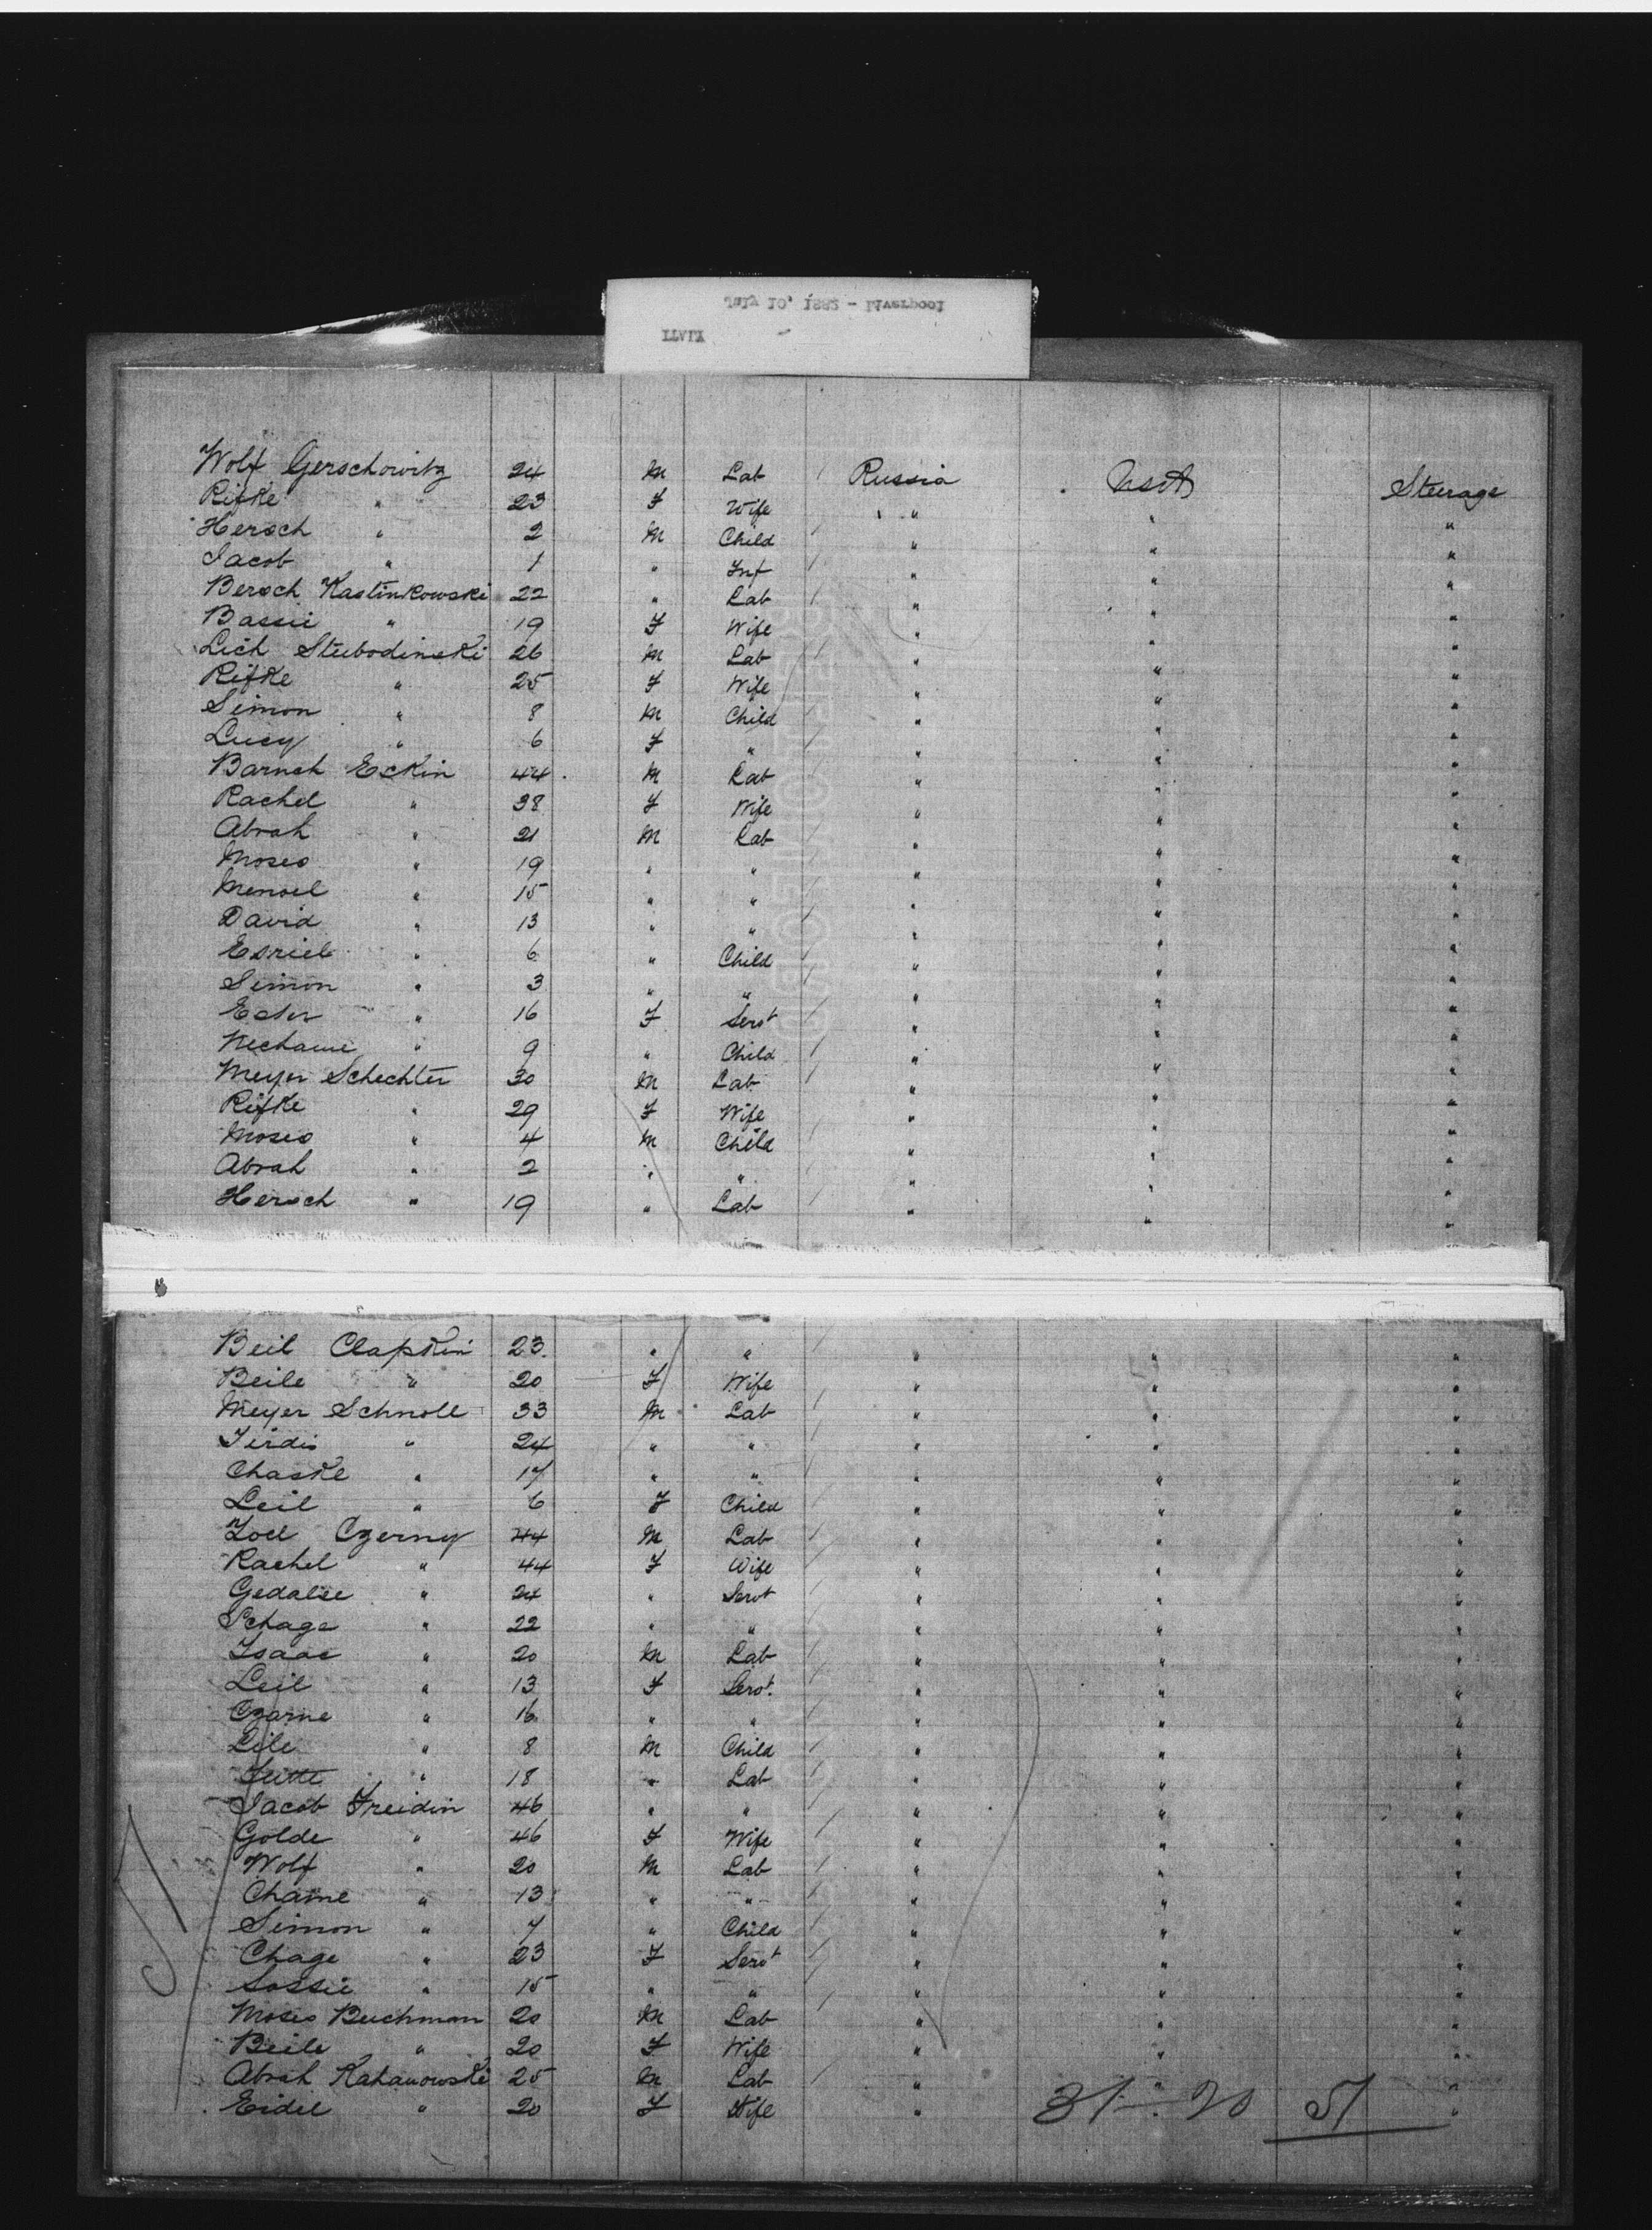 Wolf Gerschowitz 24 M Lab Russia USA Steerage
Rifke " 23 F Wife " " "
Hersch " 2 M Child " " "
Jacob " 1 " Inf " " "
Bersch Kastinkowski 22 " Lab " " "
Bassie " 19 F Wife " " "
Leih Stubodinski 26 M Lab " " "
Rifke " 25 F Wife " " "
Simon " 8 M Child " " "
Lucy " 6 F " " " "
Baruch Eckin 44 M Lab " " "
Rachel " 38 F Wife " " "
Abrah " 21 M Lab " " "
Moses " 19 " " " " "
Mensel " 15 " " " " "
David " 13 " " " " "
Esriel " 6 " Child " " "
Simon " 3 " " " " "
Ester " 16 F Servt " " "
Nechame " 9 " Child " " "
Meyer Schechter 30 M Lab " " "
Rifke " 29 F Wife " " "
Moses " 4 M Child " " "
Abrah " 2 " " " " "
Hersch " 19 " Lab " " "
Beil Clapkin 23 " " " " "
Beile " 20 F Wife " " "
Meyer Schnoll 33 M Lab " " "
Firdis " 24 " " " " "
Chaske " 17 " " " " "
Leil " 6 F Child " " "
Zoel Czerny 44 M Lab " " "
Rachel " 44 F Wife " " "
Gedalie " 24 " Servt " " "
Schage " 22 " " " " "
Isaac " 20 M Lab " " "
Leil " 13 F Servt. " " "
Czarne " 16 " " " " "
Lile " 8 M Child " " "
" 18 " Lab " " "
Jacob Freidin 46 " " " " "
Golde " 46 F Wife " " "
Wolf " 20 M Lab " " "
Chaine " 13 " " " " "
Simon " 7 " Child " " "
Chage " 23 F Servt " " "
Sossie " 15 " " " " "
Moses Buchman 20 M Lab " " "
Beile " 20 F Wife " " "
Abrah Kahanowski 25 M Lab " " "
Eidel " 20 F Wife " 31-20 51 "